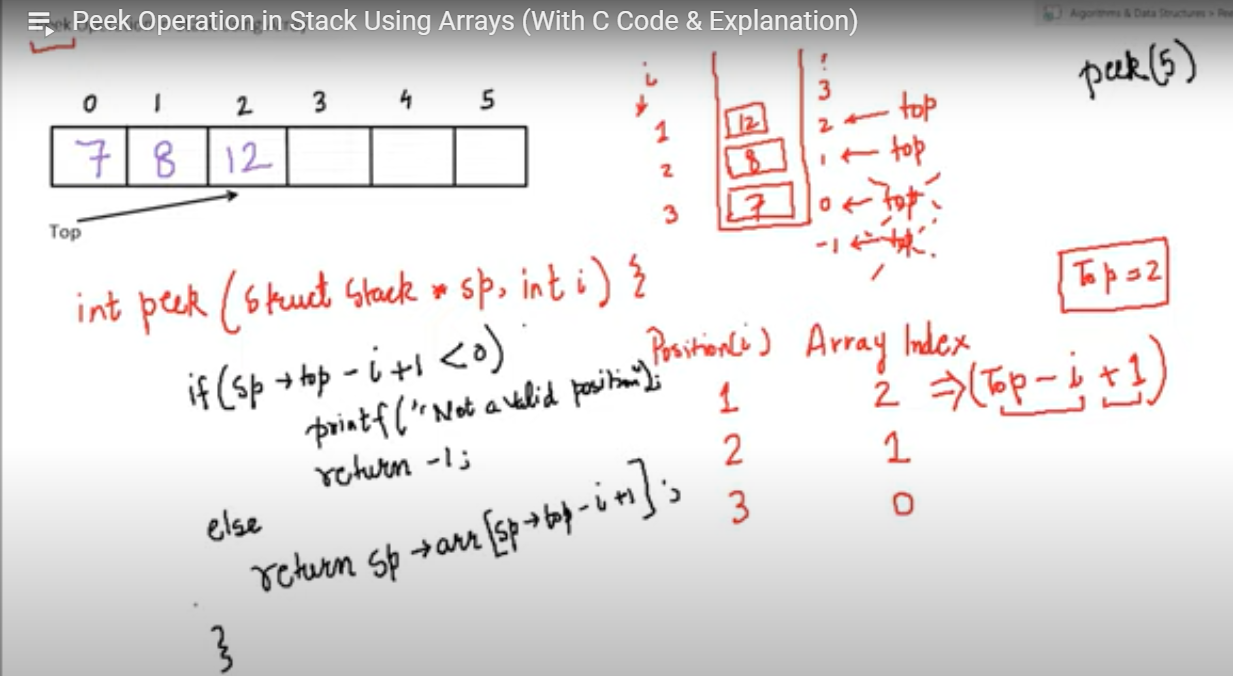 Peek Operation in Stack Using Arrays (With C Code & Explanation)
Algorithms & Data Structures >
peek(5)
0 1 2 3 4 5
7 8 12
Top
i
1
2
3
12
8
7
3
2 ← top
1 ← top
0 ← top
-1 ← top
Top = 2
int peek (struct Stack * sp, int i) {
if (sp → top - i + 1 < 0)
printf("Not a valid position");
return -1;
else
return sp → arr [sp → top - i + 1];
}
Position(i) Array Index
1 2 ⇒ (Top - i + 1)
2 1
3 0